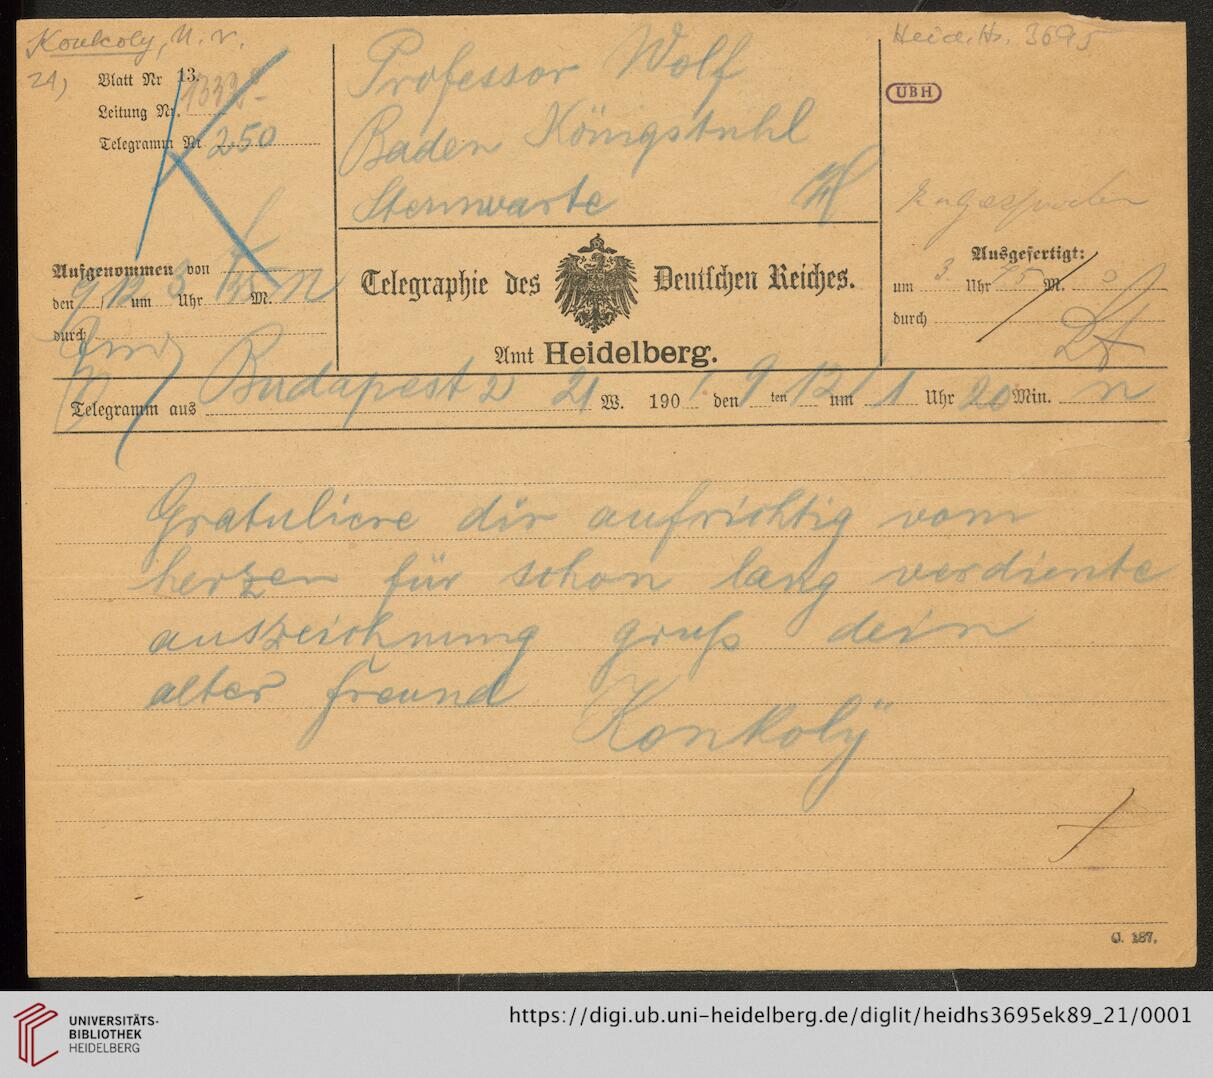 Konkoly, N. v.
21)
Blatt Nr 13.
Leitung Nr. 1332
Telegramm Nr 250
Professor Wolf
Baden Königstuhl
Sternwarte
Heid. Hs. 3695
UBH
Aufgenommen von
den 9/12 um 3 Uhr 35 M. n
durch
Telegraphie des Deutschen Reiches.
Amt Heidelberg.
zugesprochen
Ausgefertigt:
um 3. Uhr 45 M.
durch
Telegramm aus Budapest 2 21 W. 190 den 9 ten 12 um 1 Uhr 20 Min. n
Gratuliere dir aufrichtig vom
herzen für schon lang verdiente
auszeichnung gruß dein
alter freund Konkolÿ
C. 187.
UNIVERSITÄTS-
BIBLIOTHEK
HEIDELBERG
https://digi.ub.uni-heidelberg.de/diglit/heidhs3695ek89_21/0001